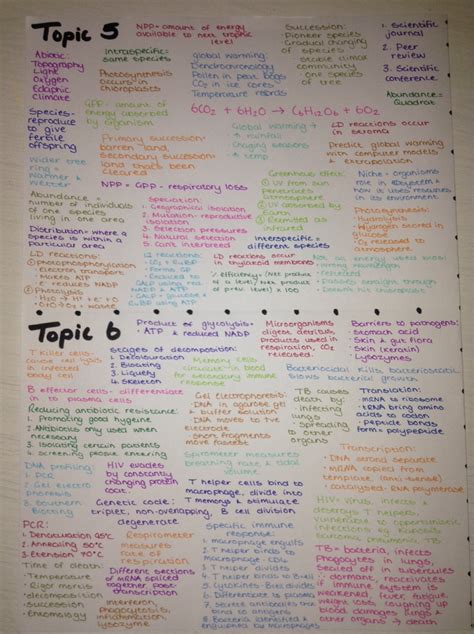 Topic 5
NPP = amount of energy
available to next trophic
level
Succession:
Pioneer species
Gradual changing
of species
climax
community
- one species
of tree
1. Scientific
journal
2. Peer
review
3. Scientific
conference
Abundance=
Quadrat
Abiotic:
Topography
Light
Oxygen
Edaphic
Climate
Intraspecific=
same species
Photosynthesis
occurs in
chloroplasts
global warming:
Dendrochronology
Pollen in peat bogs
CO2 in ice cores
Temperature records
GPP - amount of
energy absorbed
by organism
6CO2 + 6H2O → C6H12O6 + 6O2
Species-
reproduce
to give
fertile
offspring
Primary succession
barren land,
Secondary succession
land that's been
cleared
Global warming →
rainfall
Changing seasons
temp
LD reactions occur
in stroma
Predict global warming
with computer models
& extrapolation
Wider tree
ring =
warmer &
wetter
NPP = GPP - respiratory loss
Greenhouse effect:
① UV from sun
penetrates
atmosphere
② UV absorbed by
Earth
③ Reemitted as
infrared
Niche = organisms
role in ecosystem &
how it uses resources
in its environment
Abundance =
number of individuals
of one species
living in one area
Speciation:
1. Geographical isolation
2. Mutation - reproductive
isolation
3. Selection pressures
4. Natural selection
5. Can't interbreed
Photosynthesis:
Hydrolysis
Hydrogen stored in
glucose
O2 released to
atmosphere
Distribution = where a
species is within a
particular area
Interspecific =
different species
LD reactions:
① Photophosphorylation
- electron transfer
- makes ATP
- e- reduces NADP
② Photolysis
- H2O → H+ + e- + O
LI reactions:
LD reactions occur
in thylakoid membrane
% efficiency = (Net product
of a level / Net product of
prev level) x 100
Not all energy used most
wrong wavelength
reflected
Passes straight through
Doesn't hit chloroplast
Topic 6
Product of glycolysis =
ATP & reduced NADP
Microorganisms
digest detritus,
products used in
respiration, CO2
released.
Barriers to pathogens:
- Stomach acid
- Skin & gut flora
- Skin (keratin)
- Lysozymes
T Killer cells-
cause cell lysis
in infected
body cell
Stages of decomposition:
1. Decolouration
2. Bloating
3. Liquefy
4. Skeleton
Memory cells
circulate in blood
for secondary immune
response
Bacteriocidal kills, bacteriostatic
slows bacterial growth
B effector cells - differentiate
in to plasma cells
Gel Electrophoresis:
- DNA in agarose gel
& buffer solution
- DNA moves to +ve
electrode
- short fragments
move fastest
TB causes
death by:
- infecting
lungs
- spreading
to
other
organs
Translation:
- mRNA to ribosome
- tRNA bring amino
acids to codon
- peptide bonds
form = polypeptide
Reducing antibiotic resistance:
1. Promoting good hygiene
2. Antibiotics only used when
necessary
3. Isolating certain patients
4. Screening people entering
Spirometer measures
breathing rate & tidal
volume
Transcription:
- DNA strand separate
- mRNA copied from
template, (anti-sense)
- catalysed RNA polymerase
DNA profiling:
1. PCR
3. Electrophoresis
4. Southern
Blotting
HIV evades
by constantly
changing protein
coat
T helper cells bind to
macrophage, divide into
T memory & stimulate
B cell division
Genetic code: -
triplet, non-overlapping,
degenerate
HIV = virus, infects
destroys T helpers
vulnerable to opportunistic
infections eg Karposi's
sarcoma, pneumonia, death
PCR:
1. Denaturation 95°C
2. Annealing 50°C
3. Extension 70°C
Respirometer
measures
rate of
respiration
Specific immune
response:
1. Macrophage engulfs
2. T helper binds to
macrophage - CD4
3. T helper divides
4. T helper binds to B-cell
5. Cytokines - B-cell divides
6. B-cell differentiates into
plasma cells
7. Secrete antibodies that
bind to antigens
8. Bacteria identified &
engulfed by macrophages
TB = bacteria, infects
phagocytes in lungs,
sealed in tubercules
- dormant, reactivates
if immune system
weakened, fever, fatigue,
weight loss, coughing up
blood, damages lungs &
other organs → death
Time of death:
- Temperature
- Rigor mortis
- Decomposition
- Succession
- Entomology
Different sections
of mRNA spliced
together Post-
transcription
Interferon,
Phagocytosis,
inflammation
lysozyme